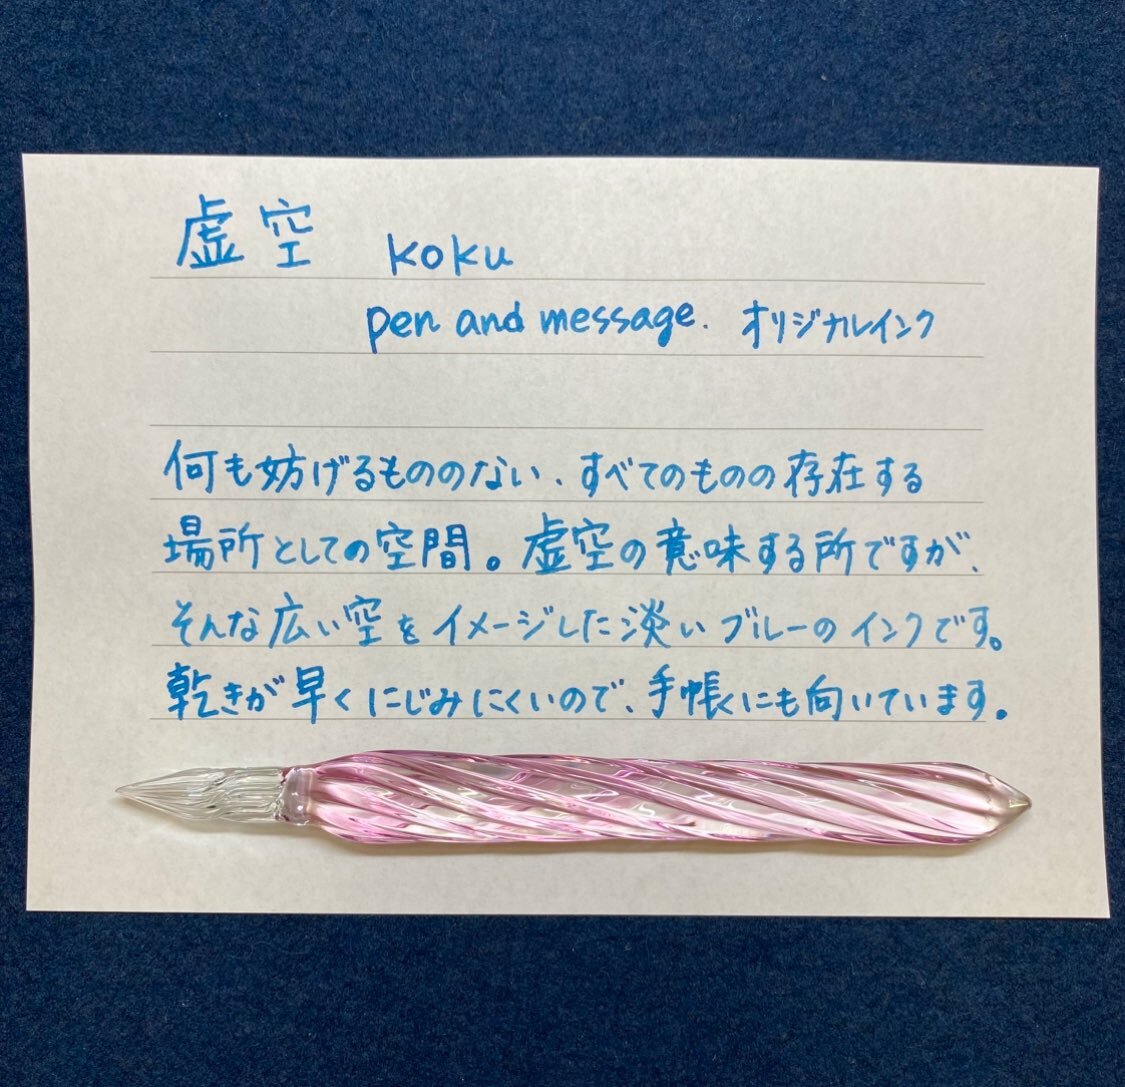 虚空 koku
pen and message. オリジナルインク
何も妨げるもののない、すべてのものの存在する
場所としての空間。虚空の意味する所ですが、
そんな広い空をイメージした淡いブルーのインクです。
乾きが早くにじみにくいので、手帳にも向いています。